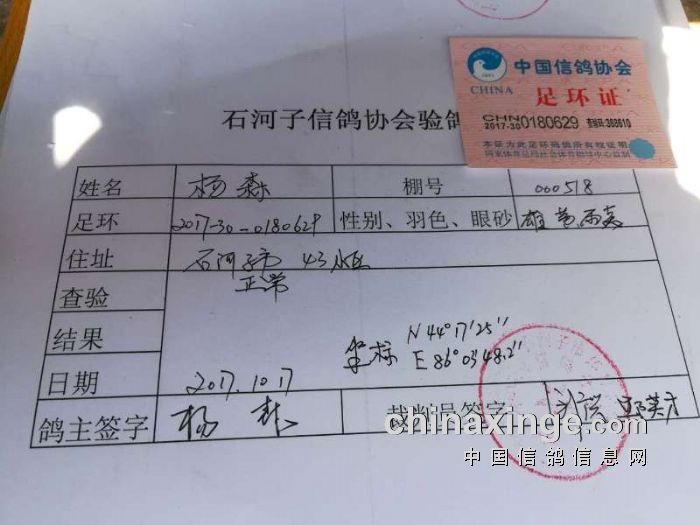 中国信鸽协会
CHINA
足环证
CHN
2017-30 0180629
石河子信鸽协会验鸽
姓名 杨森 棚号 000518
足环 2017-30-0180629 性别、羽色、眼砂 雄
住址 石河子市 43小区
查验 正常
结果
坐标 N 44°17'25"
E 86°03'48.2"
日期 2017.10.17
鸽主签字 杨森 裁判员签字
chinaxinge.com
中国信鸽信息网